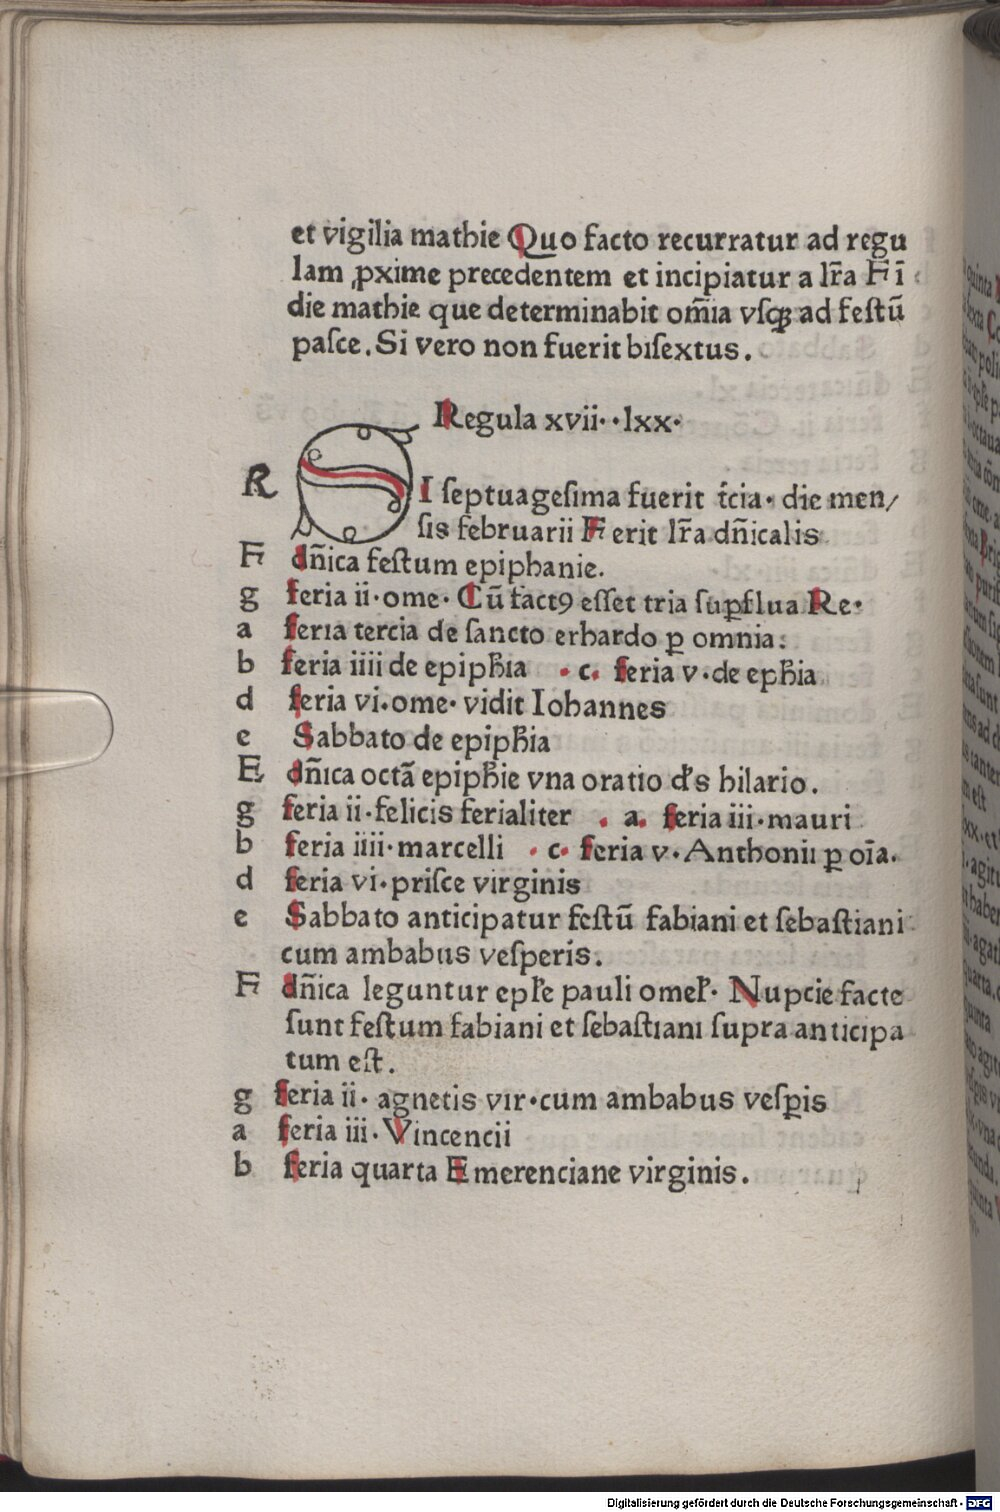 et vigilia mathie Quo facto recurratur ad regu
lam ꝓxime precedentem et incipiatur a lr̃a F ĩ
die mathie que determinabit om̃ia vſqꝫ ad feſtũ
paſce. Si vero non fuerit biſextus.
Regula xvii· ·lxx·
R SI ſeptuageſima fuerit t̃cia· die men/
ſis februarii F erit lr̃a dñicalis
F dñica feſtum epiphanie.
g feria ii·ome· Cũ factꝯ eſſet tria ſuꝑflua Re·
a feria tercia de ſancto erhardo ꝑ omnia:
b feria iiii de epiph̃ia · c. feria v·de eph̃ia
d feria vi·ome· vidit Iohannes
e Sabbato de epiph̃ia
F dñica octã epiph̃ie vna oratio d's hilario.
g feria ii·felicis ferialiter . a. feria iii·mauri
b feria iiii·marcelli · c· feria v·Anthonii ꝑ oĩa.
d feria vi·priſce virginis
e Sabbato anticipatur feſtũ fabiani et ſebaſtiani
cum ambabus veſperis.
F dñica leguntur epl'e pauli omel'· Nupcie facte
ſunt feſtum fabiani et ſebaſtiani ſupra anticipa
tum eſt.
g feria ii· agnetis vir·cum ambabus veſꝑis
a feria iii·Vincencii
b feria quarta Emerenciane virginis.
Digitalisierung gefördert durch die Deutsche Forschungsgemeinschaft - DFG